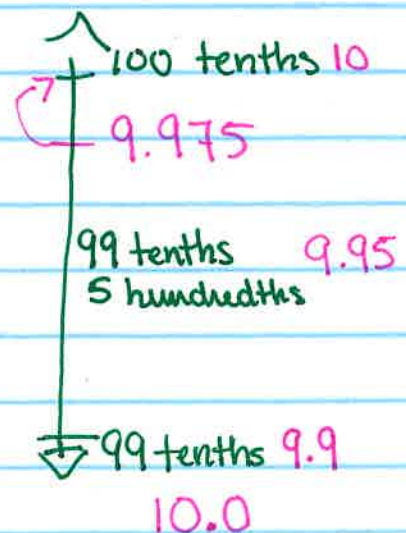 100 tenths 10
9.975
99 tenths 9.95
5 hundredths
99 tenths 9.9
10.0